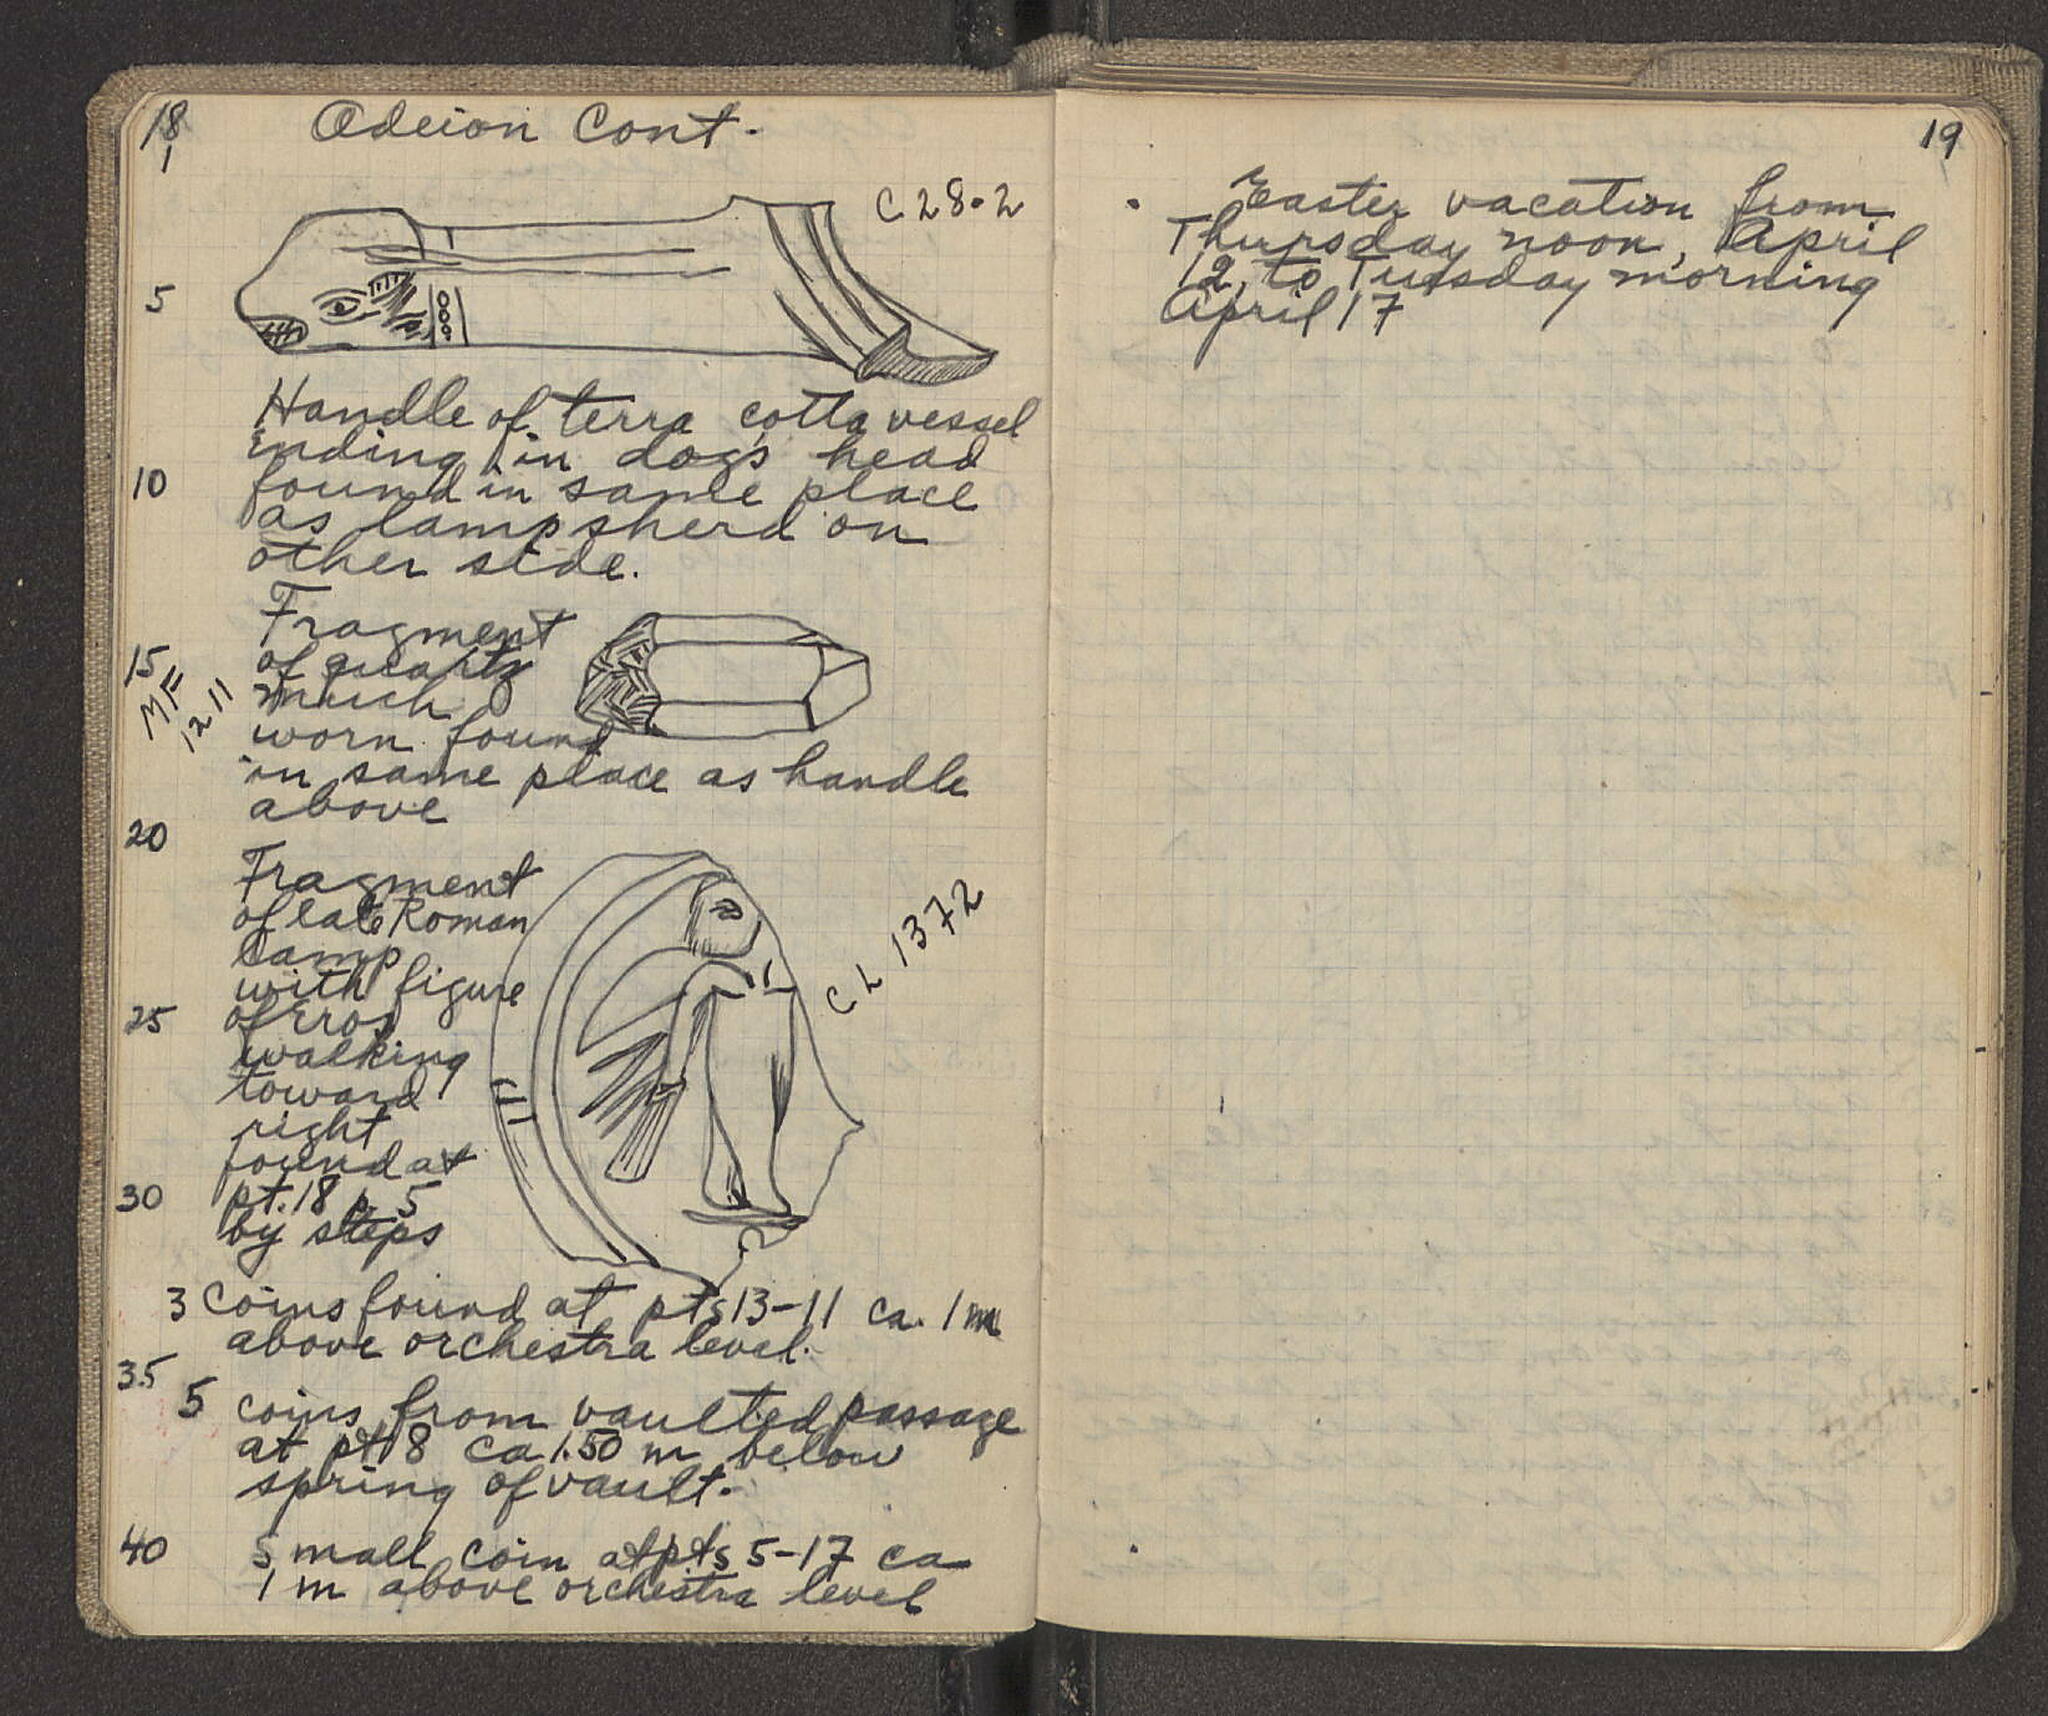 18
Odeion Cont.
1
C 28-2
5
Handle of terra cotta vessel
ending in dog's head
10 found in same place
as lamp sherd on
other side.
Fragment
15 of quartz
MF
1211
much
worn found
in same place as handle
above
20
Fragment
of late Roman
lamp
with figure
25 of Eros
walking
toward
right
found at
30 pt. 18 p. 5
by steps
CL 1372
3 coins found at pts 13-11 ca. 1 m
above orchestra level.
35
5 coins from vaulted passage
at pt 18 ca 1.50 m below
spring of vault.
40 Small coin at pts 5-17 ca
1 m above orchestra level
19
Easter vacation from
Thursday noon, April
12, to Tuesday morning
April 17